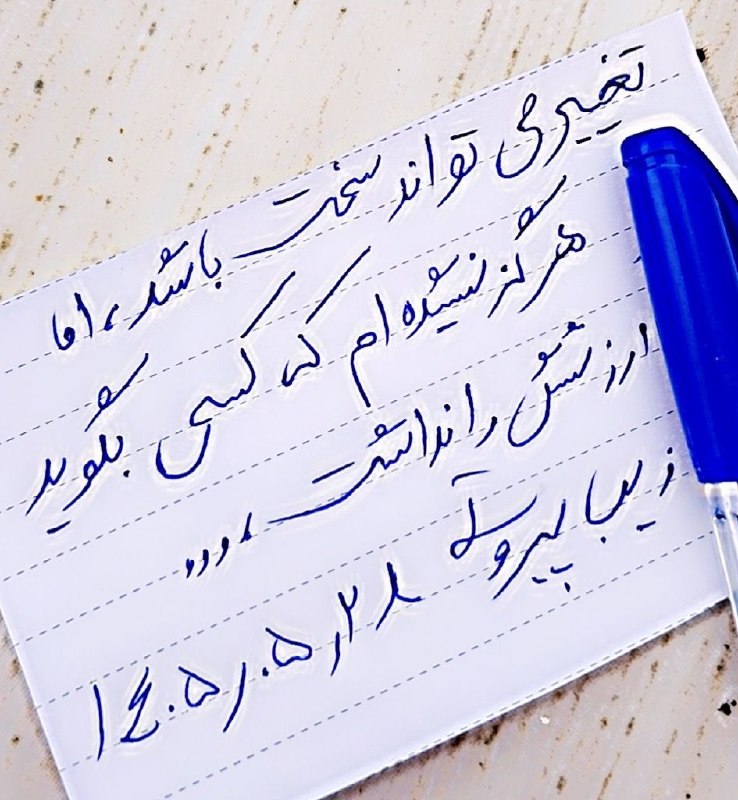 تغییر می تواند سخت باشد، اما
هرگز نشیده ام که کسی بگوید
ارزشش را نداشت ،،،،
زیبا پیروی
۱۴۰۵٫۰۵٫۲۸